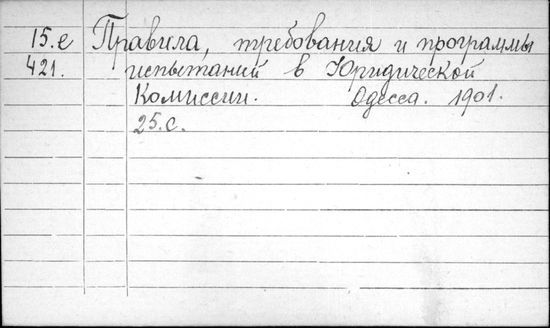 15.е Правила, требования и программы
421. испытаний в Юридической
Комиссии. Одесса. 1901.
25.с.